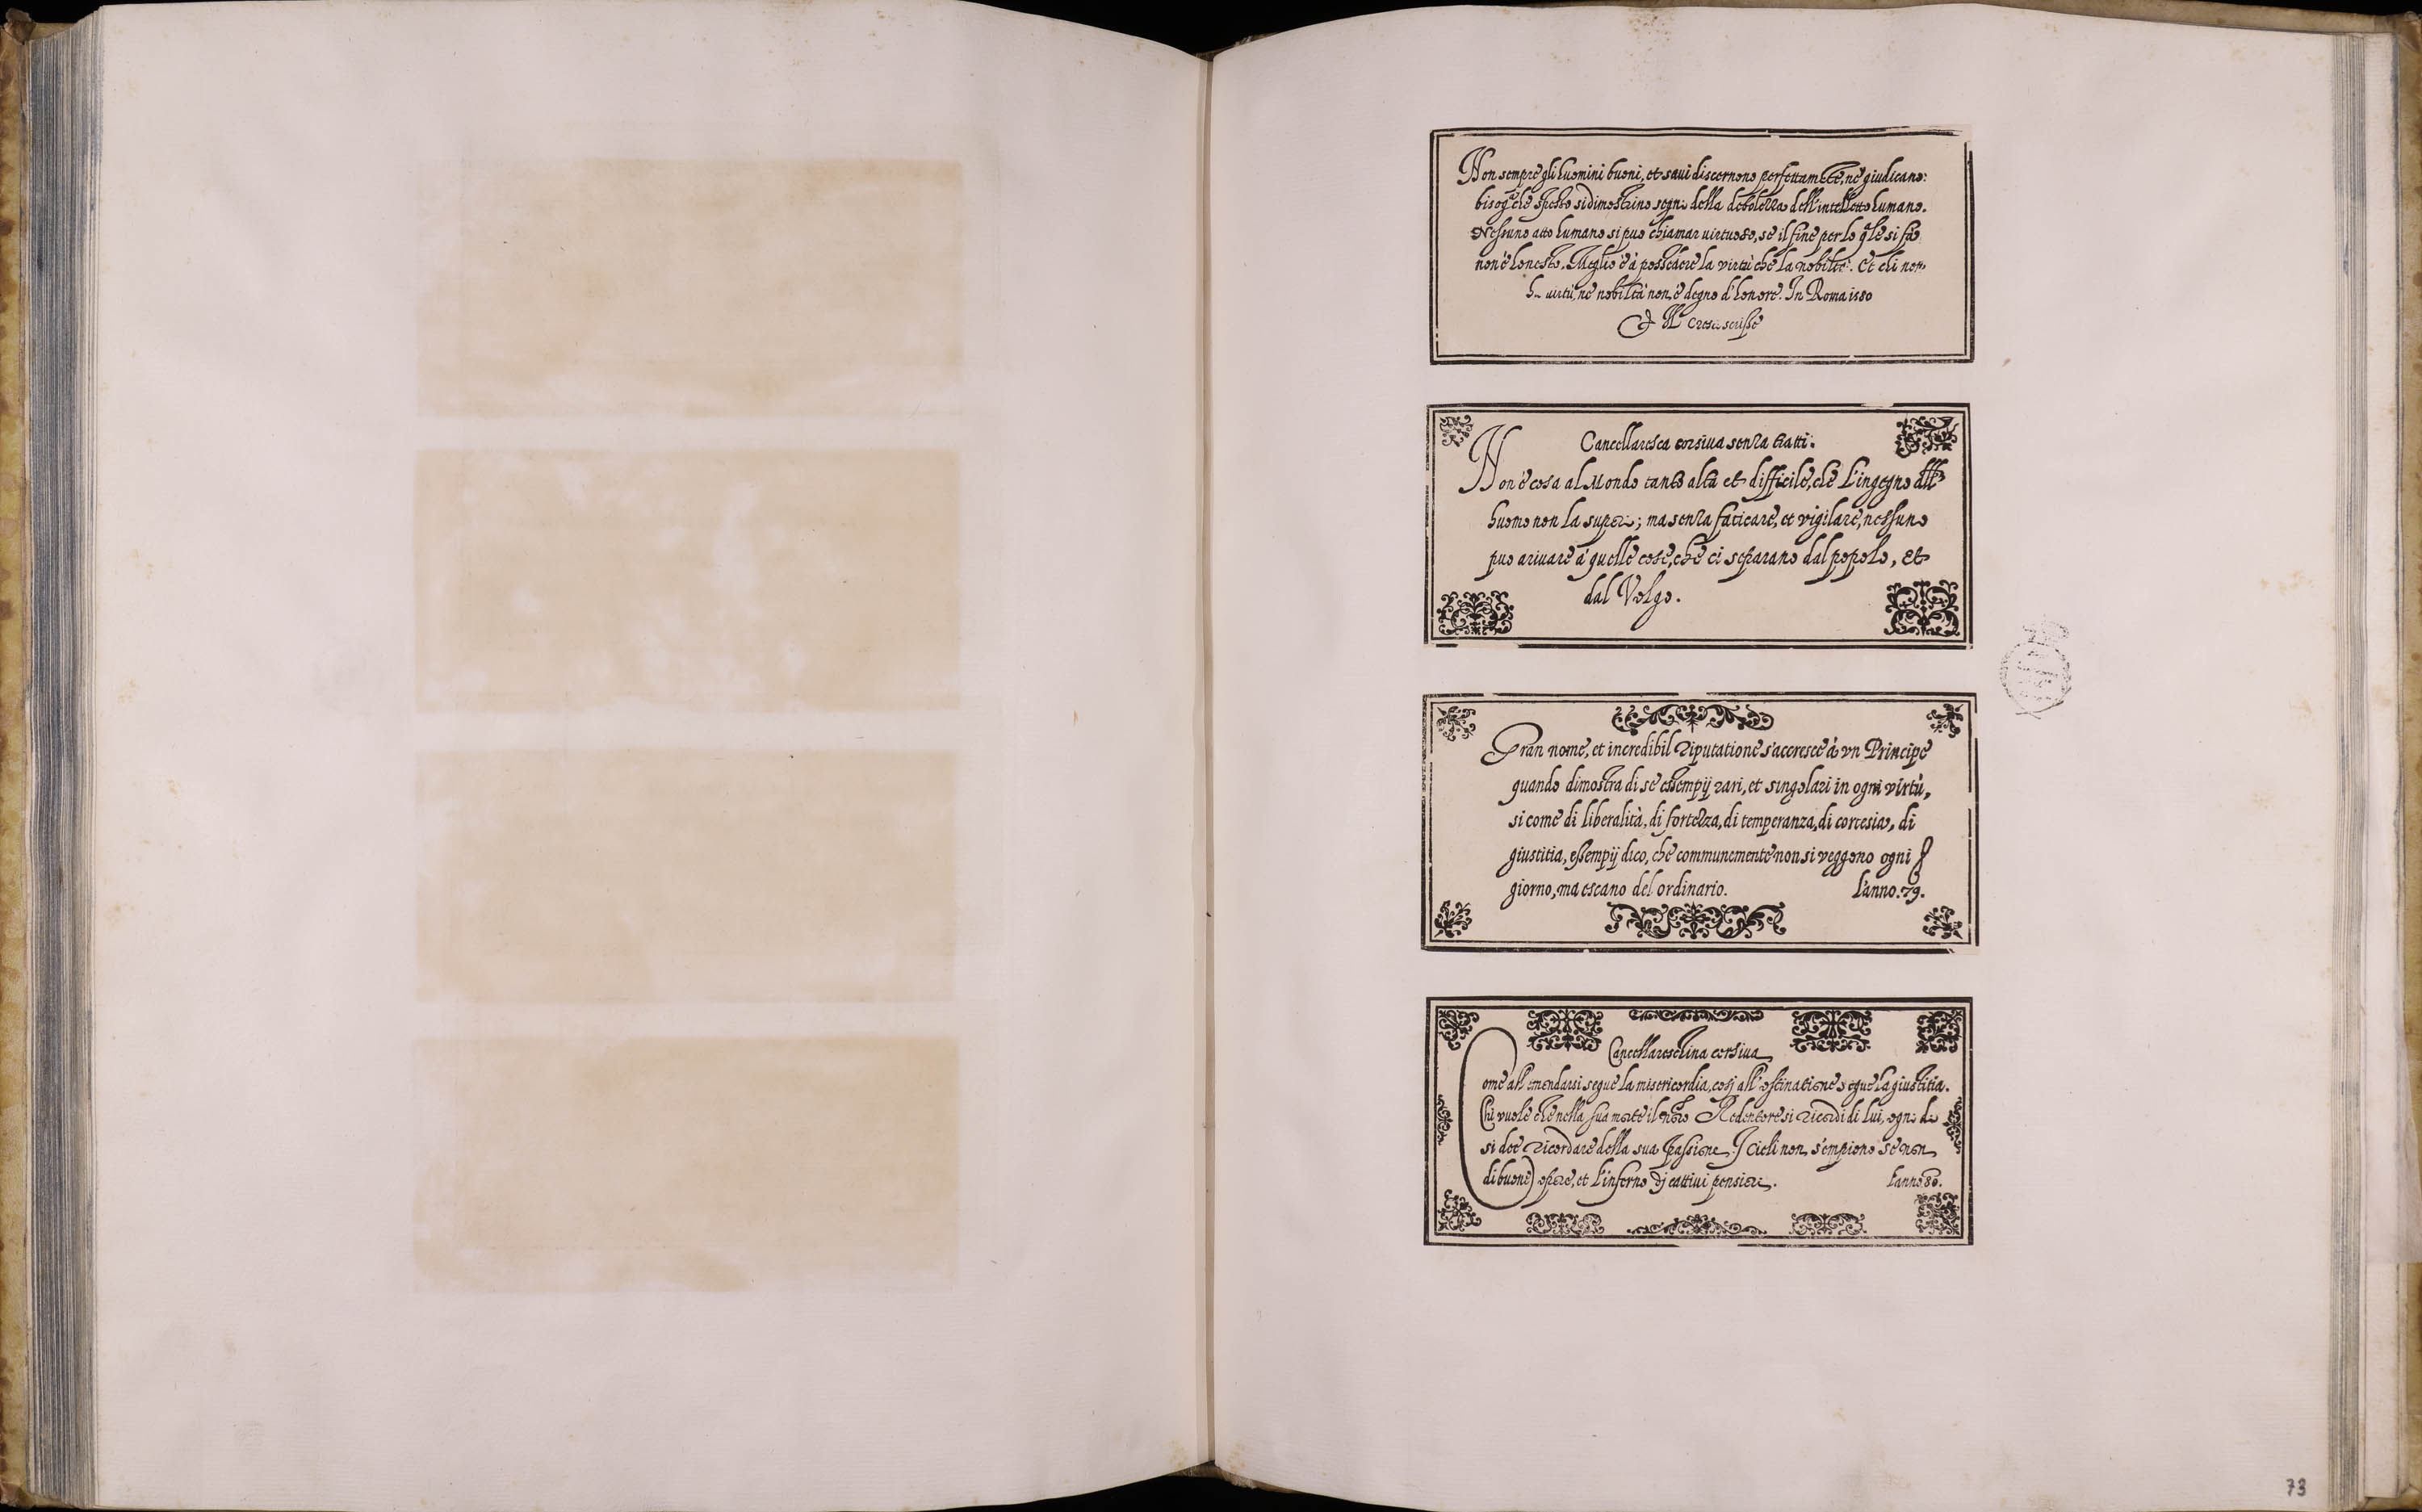 Non sempre gli huomini buoni, et savi discernono perfettamēte, nè giudicano:
bisog.ª che spesso si dimostrino segni della debolezza dell'intelletto humano.
Nessuno atto humano si puo chiamar uirtuoso, se il fine per lo q̃le si fa
non è honesto. Meglio è à possedere la virtù che la nobiltà. Et chi non
ha uirtù, nè nobiltà non è degno d'honore. In Roma 1580
Cresci scriße
Cancellaresca corsiua senza tratti.
Non è cosa al Mondo tanto alta et difficile, chè l'ingegno dell'
huomo non la superi; ma senza faticare, et vigilare, nessuno
puo arivare à quelle cose, che ci separano dal popolo, et
dal Volgo.
Gran nome, et incredibil riputatione s'accresce à vn Principe
quando dimostra di se essempij rari, et singolari in ogni virtù,
si come di liberalità, di fortezza, di temperanza, di cortesia, di
giustitia, eßempij dico, che communemente non si veggono ogni
giorno, ma escano del ordinario. l'anno. 79.
Cancellareschina corsiua
Come all'emendarsi segue la misericordia, cosj all'ostinatione segue la giustitia.
Chi vuole che nella sua morte il nr̃o Redentore si ricordi di lui, ogni dì
si deè ricordare della sua passione. I cieli non s'empiono se non
di buone opere, et l'inferno dj cattiui pensieri. l'anno 80.
73